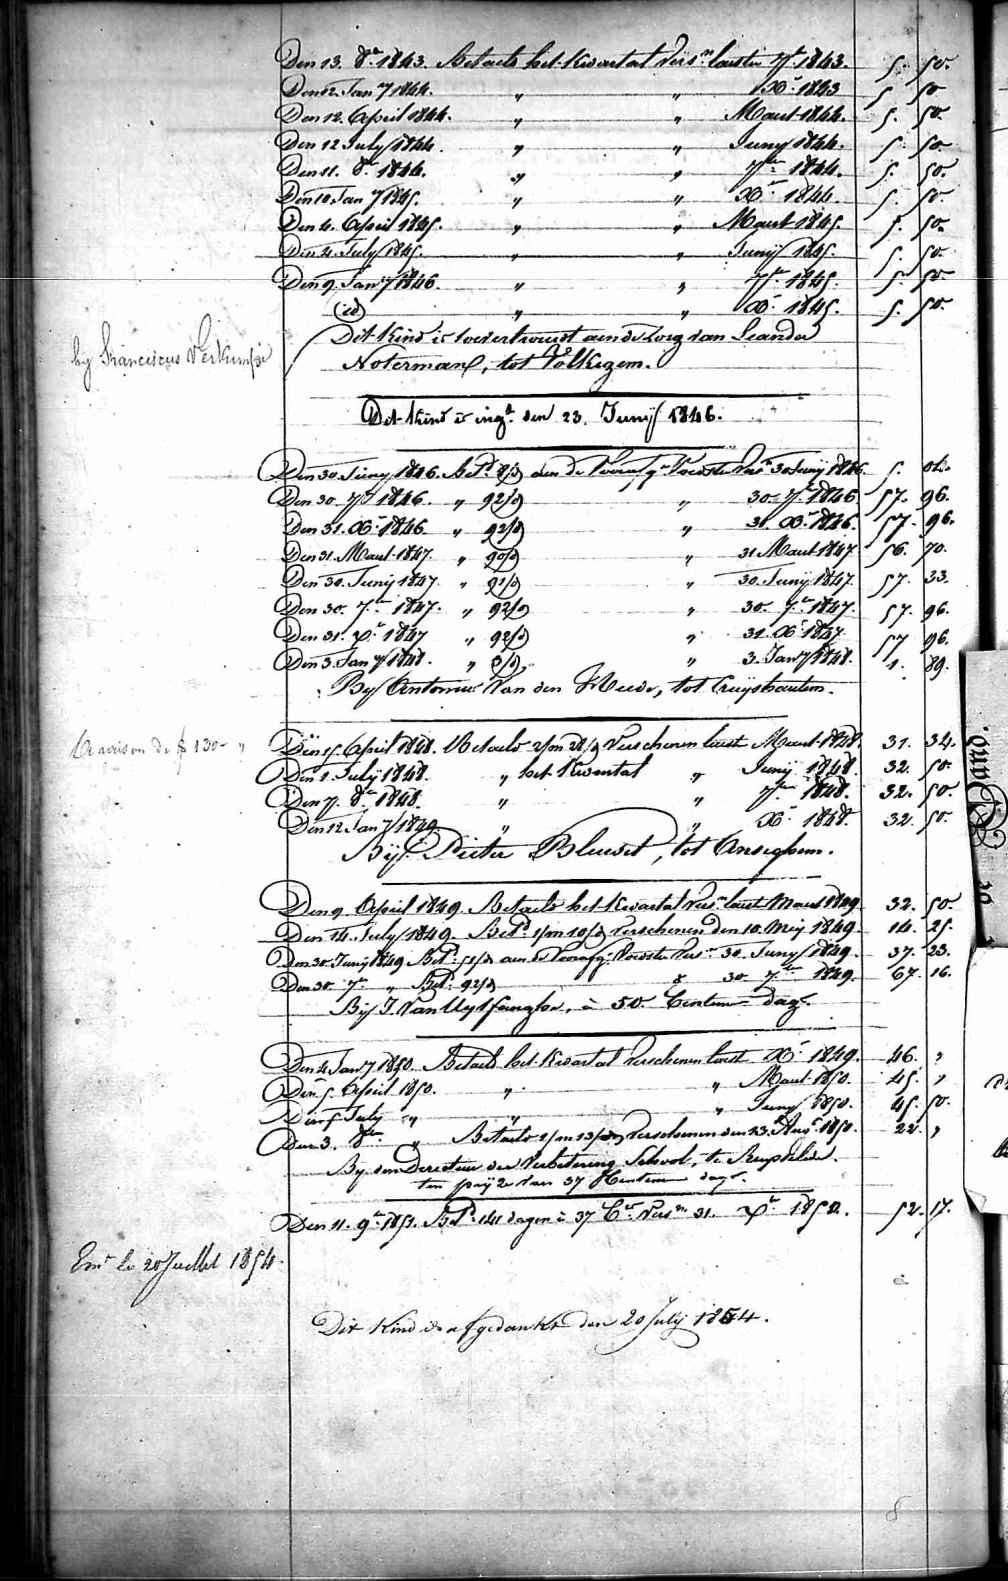 Den 13. 8re 1843. Betaelt het Kwartaal Vers.n laesten 7re 1843. 5. 50.
Den 12. Jan.y 1844. " " Xr 1843 5 50
Den 12. April 1844. " " Maart 1844. 5. 50.
Den 12 July 1844 " " Juny 1844. 5. 50
Den 11. 8re 1844. " " 7re 1844. 5. 50.
Den 10 Jan.y 1845. " " Xr 1844. 5. 50.
Den 4. April 1845. " " Maart 1845. 5. 50.
Den 4. July 1845. " " Junij 1845. 5. 50.
Den 9. Jan.y 1846. " " 7re 1845. 5. 50
(id) " " Xr 1845. 5. 50.
Dit Kind is toevertrouwt aen de Zorg van Leander
by Franciscus
Noterman, tot Volkegem.
Dit Kind is ing.t den 23. Junij 1846.
Den 30 Juny 1846. Bet.d 8/d aen de Voorsz. Voedster Vers.n 30 Junij 1846. 5. 04.
Den 30. 7re 1846. " 92/d " 30. 7re 1846 57. 96.
Den 31. Xr 1846. " 92/d " 31. Xr 1846. 57. 96.
Den 31. Maart 1847. " 90/d " 31 Maart 1847. 56. 70.
Den 30. Junij 1847 " 91/d " 30. Junij 1847. 57. 33.
Den 30. 7re 1847. " 92/d " 30. 7re 1847. 57. 96.
Den 31. Xr 1847 " 92/d " 31. Xr 1847 57 96.
Den 3. Jan.y 1848. " 3/d " 3. Jan.y 1848. 1. 89.
By Antonius Van den Heede, tot Cruyshautem.
A raison de f 130 "
Den 15. April 1848. Betaelt 2/m 28/d Verschenen laest Maart 1848. 31. 34.
Den 1. July 1848. " het Kwartal " Junij 1848. 32. 50.
Den 7. 8re 1848. " " 7re 1848. 32. 50.
Den 12 Jan.y 1849. " " Xr 1848. 32. 50.
Bij Pieter , tot Anseghem.
Den 9. April 1849. Betaelt het Kwartal Vers.n laest Maart 1849 32. 50.
Den 14. July 1849. Bet.d 1/m 10/d Verschenen den 10. Meij 1849. 14. 25.
Den 30 Junij 1849 Bet.d 51/d aen de Voorsz. Voedster Vers.n 30. Juny 1849. 37. 23.
Den 30 7re " Bet.d 92/d " 30 7re 1849. 67. 16.
Bij J. Van Uytfanghe, à 50. Centimen daegs.
Den 4 Jan.y 1850. Betaelt het Kwartal Verschenen laest Xr 1849. 46. "
Den 5. April 1850. " " Maart 1850. 45. "
Den 5 July " " " Juny 1850. 45. 50.
Den 3. 8re " Betaelt 1/m 13/d Verschenen den 13. Aug. 1850. 22. "
By den Directeur der Verbetering School, te Ruysselede.
ten prijze van 37 Centimen daegs.
Den 11. 9re 1851. Bet.d 141 dagen à 37 C.en Vers.n 31. Xr 1850. 52. 17.
Em.é le 20 Juillet 1854.
Dit Kind is afgedankt den 20 July 1854.